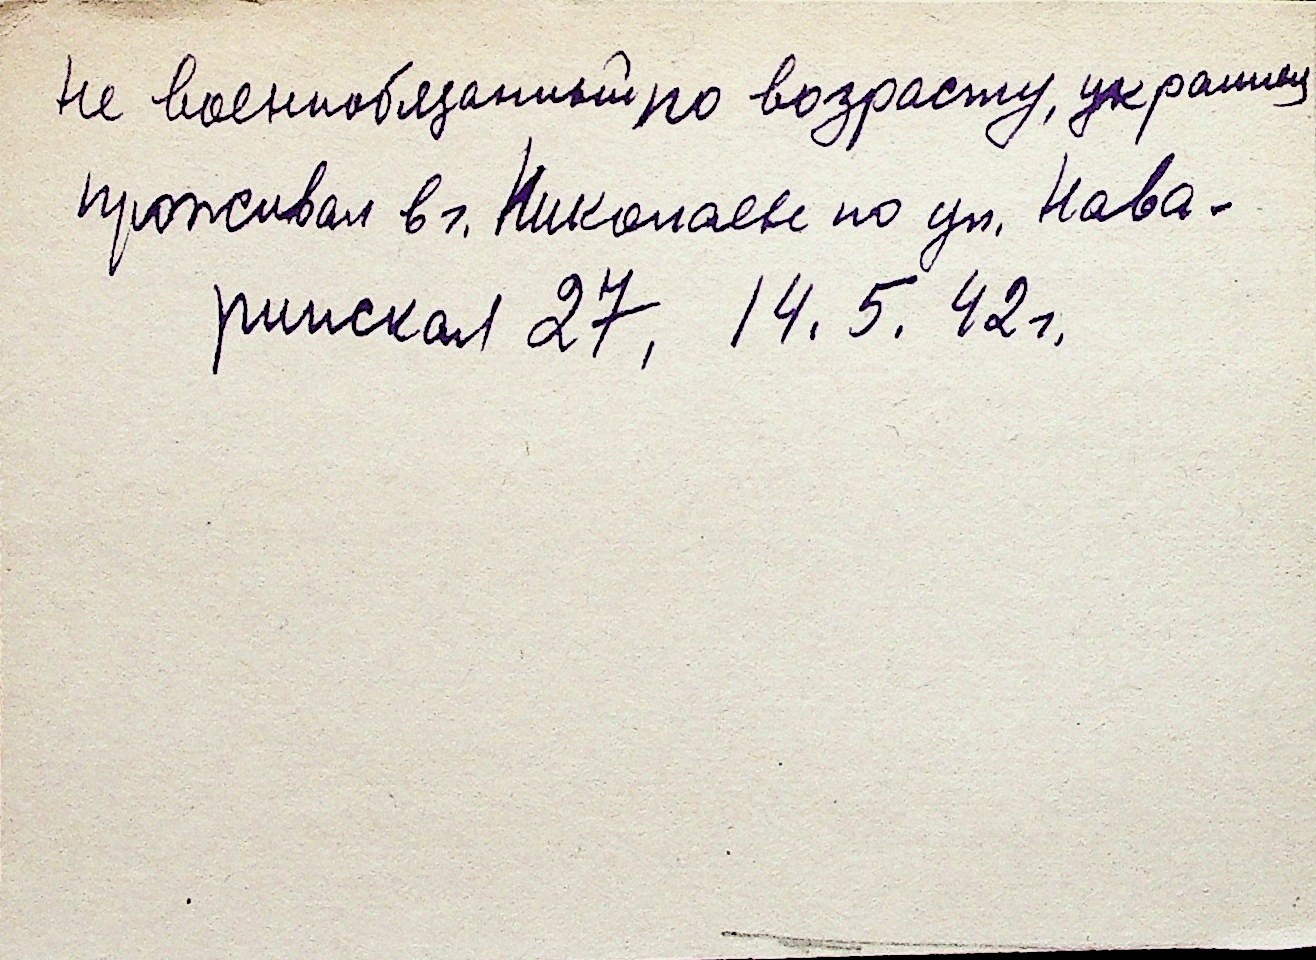 не военнообязанный по возрасту, украинец
проживал в г. Николаеве по ул. Нава-
ринская 27, 14.5.42г.